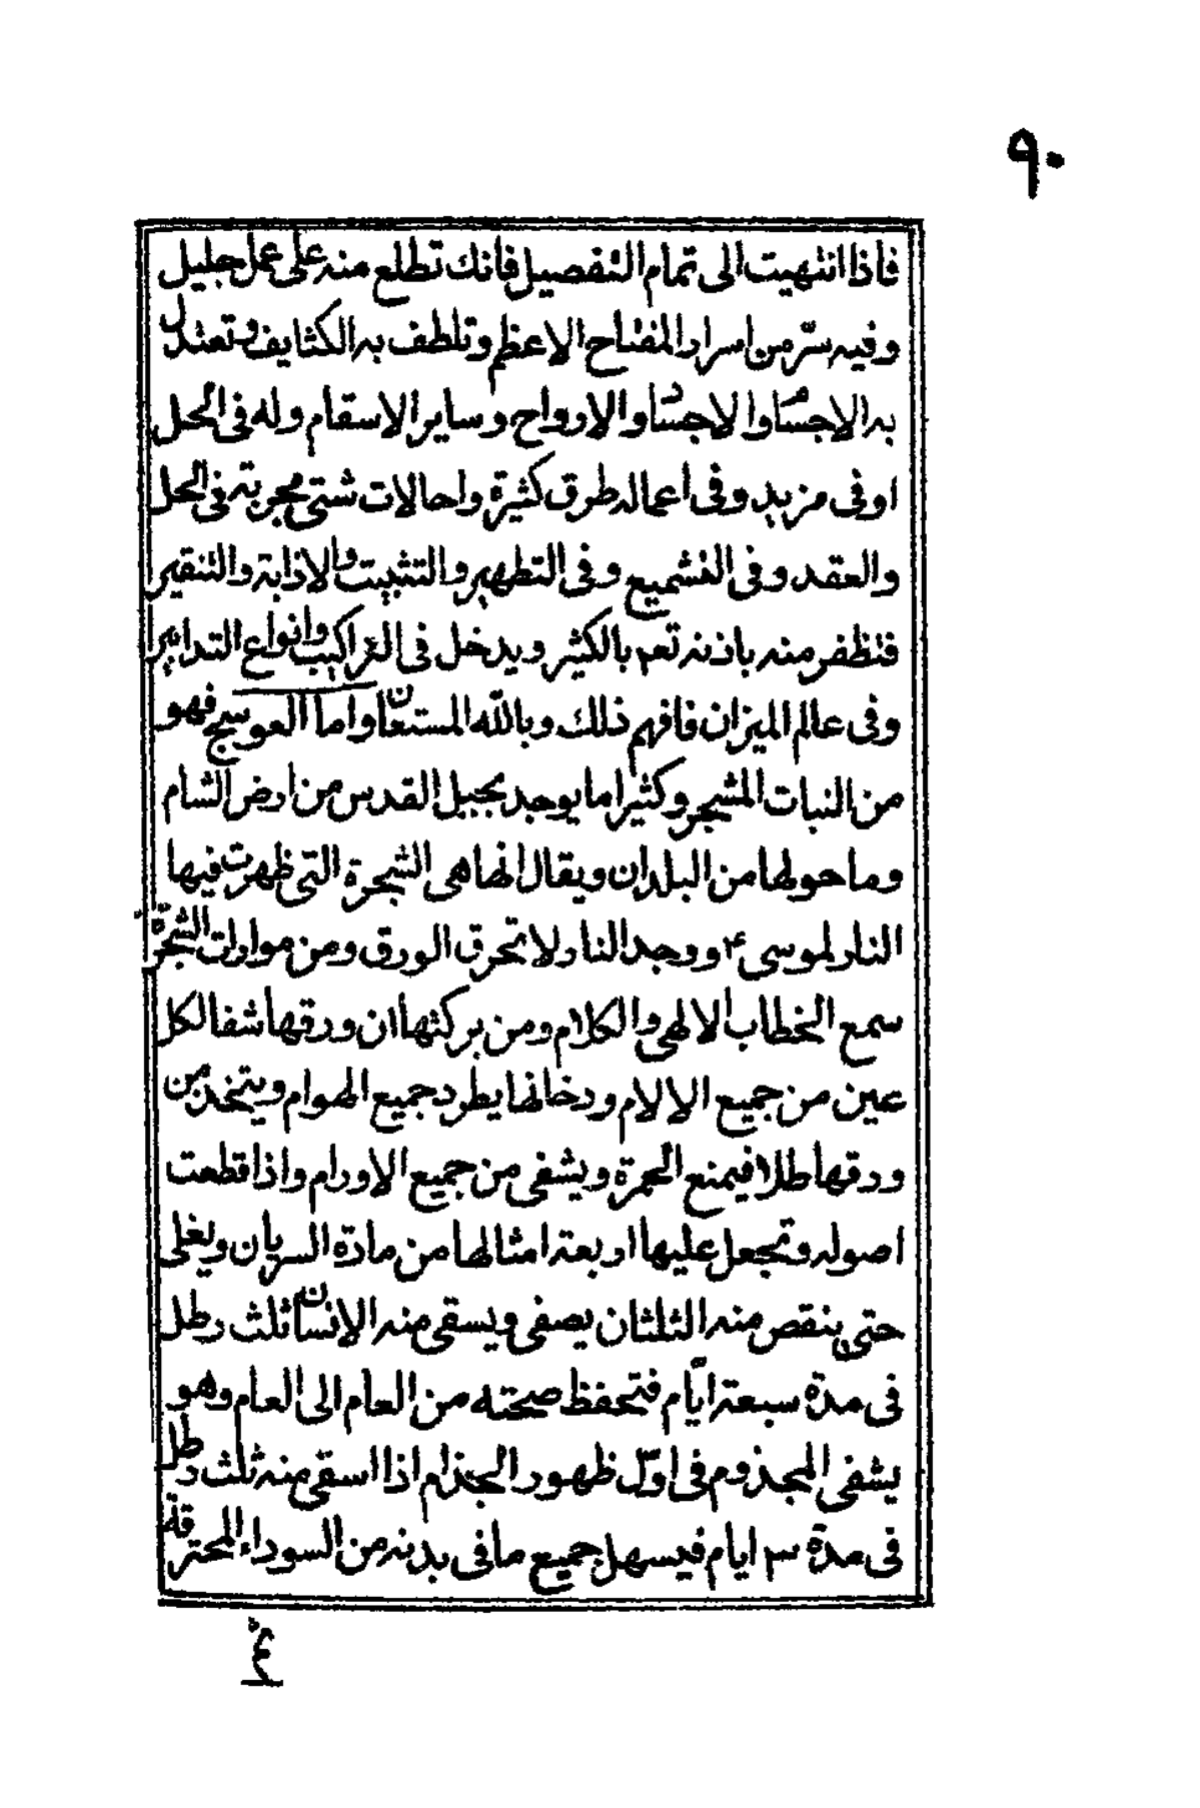 ٩٠
فاذا انتهيت الى تمام التفصيل فانك تطلع منه على عمل جليل
وفيه سرّ من اسرار المفتاح الاعظم وتلطف به الكثايف وتعتدل
به الاجسام والاجساد والارواح وساير الاسقام وله فى الحل
اوفى مزيد وفى اعماله طرق كثيرة واحالات شتى مجربة فى الحل
والعقد وفى التشميع وفى التطهير والتثبيت والاذابة والتنقير
فتظفر منه باذنه تعم بالكثير ويدخل فى التراكيب وانواع التدابير
وفى عالم الميزان فافهم ذلك وبالله المستعان واما العوسج فهو
من النبات المشجر وكثيرا ما يوجد بجبل القدس من ارض الشام
وما حولها من البلدان ويقال انها هى الشجرة التى ظهرت فيها
النار لموسى ء ووجد النار لا تحرق الورق ومن موارات الشجرة
سمع الخطاب الالهى والكلام ومن بركتها ان ورقها شفا لكل
عين من جميع الالام ودخانها يطرد جميع الهوام ويتخذ من
ورقها طلا فيمنع الحمرة ويشفى من جميع الاورام واذا قطعت
اصوله وتجعل عليها اربعة امثالها من مادة السريان ويغلى
حتى ينقص منه الثلثان يصفى ويسقى منه الانسان ثلث رطل
فى مدة سبعة ايّام فتحفظ صحته من العام الى العام وهو
يشفى المجذوم فى اوّل ظهور الجذام اذا اسقى منه ثلث رطل
فى مدة ٣ ايام فيسهل جميع ما فى بدنه من السوداء المحترقة